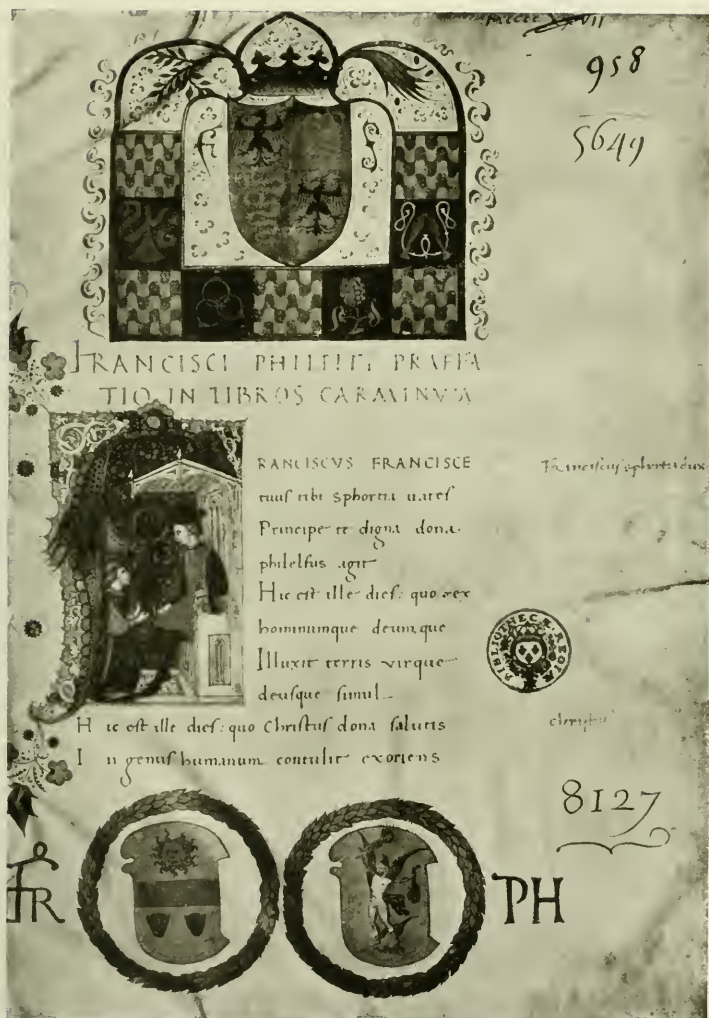 958
5649
F S
FRANCISCI PHILELFI, PRAEFA
TIO IN LIBROS CARMINVM
RANCISCVS FRANCISCE
tuus tibi Sphortia uates
Principe te digna dona
philelfus agit
Hic est ille dies: quo rex
hominumque deumque
Illuxit terris virque
deusque simul.
H ic est ille dies: quo Christus dona salutis
I n genus humanum contulit exoriens
Franciscus sphortia dux
BIBLIOTHECÆ REGIÆ
christus
8127
FR
PH